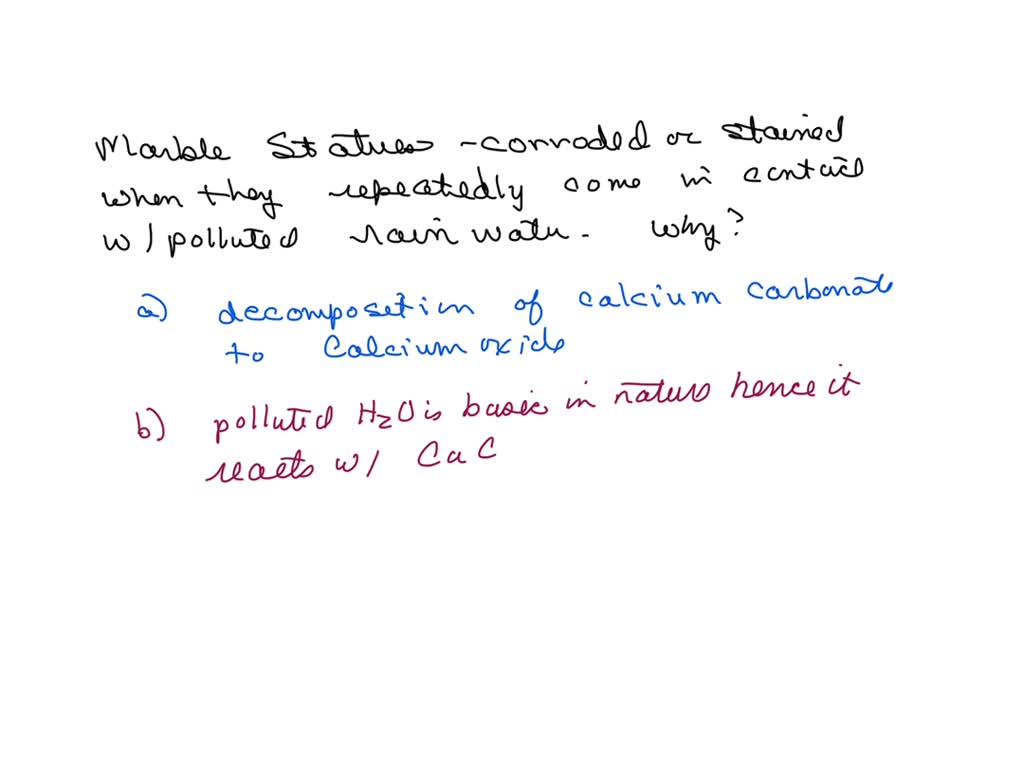 Marble Statues - corroded or stained
when they repeatedly come in contact
w/ polluted rain water. Why?
a) decomposition of calcium carbonate
to Calcium oxide
b) polluted H₂O is basic in nature hence it
reacts w/ CaC